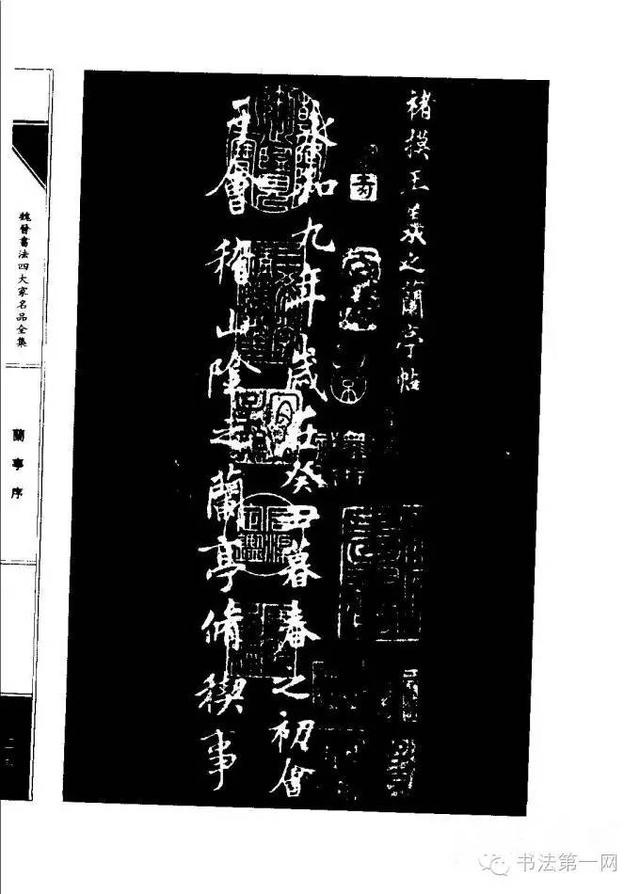 褚摸王羲之蘭亭帖
永和九年歲在癸丑暮春之初會
于會稽山陰之蘭亭脩稧事
魏晉書法四大家名品全集
蘭亭序
书法第一网